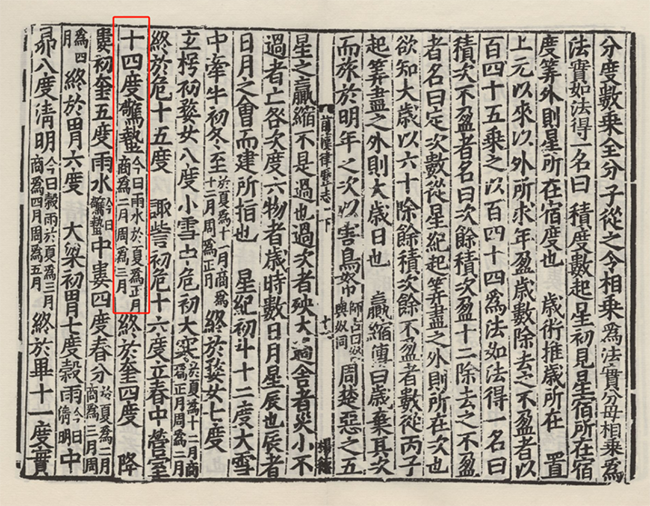 分度數乘全分子從之令相乘為法實分母相乘為
法實如法得一名曰積度數起星初見星宿所在宿
度筭外則星所在宿度也 歲術推歲所在 置
上元以來以外所求年盈歲數除去之不盈者以
百四十五乘之以百四十四為法如法得一名曰
積次不盈者名曰次餘積次盈十二除去之不盈
者名曰定次數從星紀起筭盡之外則所在次也
欲知大歲以六十除餘積次餘不盈者數從丙子
起筭盡之外則大歲日也 贏縮傳曰歲棄其次
而旅於明年之次以害鳥帑師古曰帑與奴同周楚惡之五
前漢律曆志下 十一
星之贏縮不是過也過次者殃大過舍者災小不
過者亡咎次度六物者歲時數日月星辰也辰者
日月之會而建所指也 星紀初斗十二度大雪
中牽牛初冬至於夏為十一月商為十二月周為正月終於婺女七度
玄枵初婺女八度小雪中危初大寒於夏為十二月商為正月周為二月
終於危十五度 諏訾初危十六度立春中營室
十四度驚蟄今日雨水於夏為正月商為二月周為三月終於奎四度 降
婁初奎五度雨水今日驚蟄中婁四度春分於夏為二月商為三月周
為四月終於胃六度 大梁初胃七度穀雨今日清明中
昴八度清明今日穀雨於夏為三月商為四月周為五月終於畢十一度實